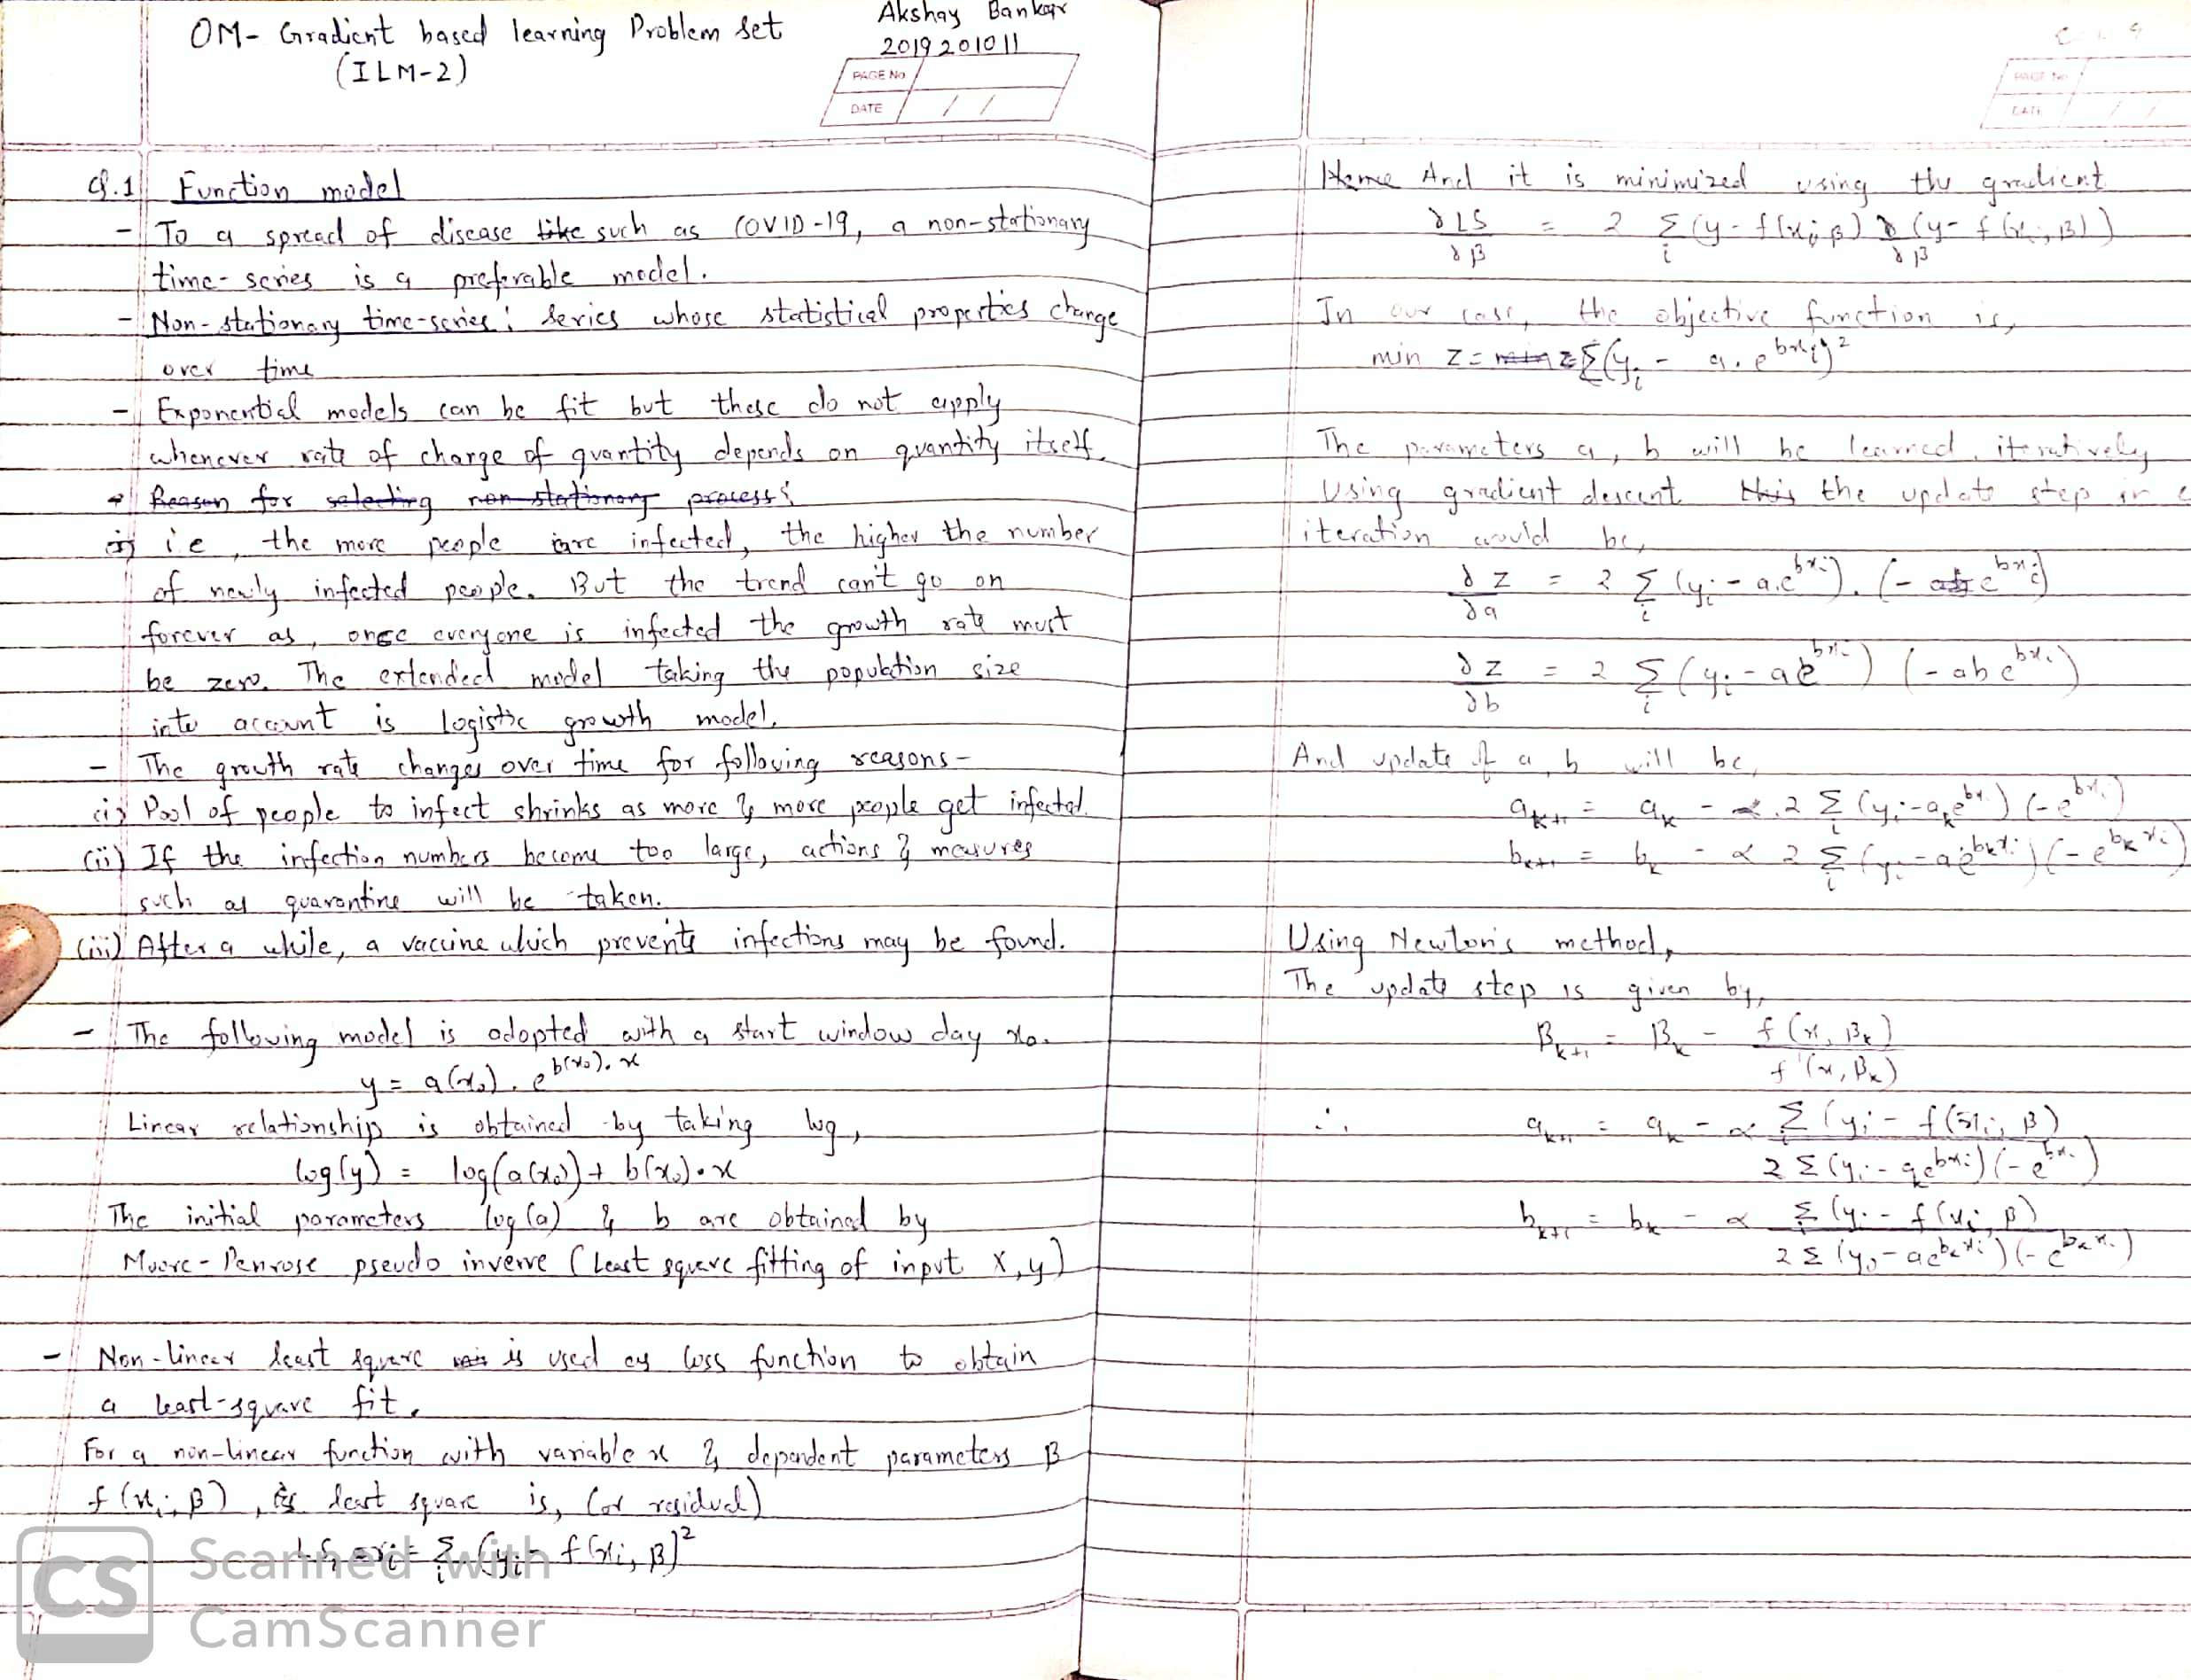 OM- Gradient based learning Problem set
(ILM-2)
Akshay Bankar
2019201011
PAGE No
DATE / /
Q.1 Function model
- To a spread of disease like such as COVID-19, a non-stationary
time-series is a preferable model.
- Non-stationary time-series: Series whose statistical properties change
over time
- Exponential models can be fit but these do not apply
whenever rate of change of quantity depends on quantity itself.
Reason for selecting non-stationary process:
i.e, the more people are infected, the higher the number
of newly infected people. But the trend can't go on
forever as, once everyone is infected the growth rate must
be zero. The extended model taking the population size
into account is logistic growth model.
- The growth rate changes over time for following reasons-
(i) Pool of people to infect shrinks as more & more people get infected.
(ii) If the infection numbers become too large, actions & measures
such as quarantine will be taken.
(iii) After a while, a vaccine which prevents infections may be found.
- The following model is adopted with a start window day x₀.
y = a(x₀). e^{b(x₀). x}
Linear relationship is obtained by taking log,
log(y) = log(a(x₀)) + b(x₀).x
The initial parameters log(a) & b are obtained by
Moore-Penrose pseudo inverse (Least square fitting of input X, y)
- Non-linear least square is used as loss function to obtain
a least-square fit.
For a non-linear function with variable x & dependent parameters β
f(xᵢ; β), least square is, (or residual)
= Σᵢ (yᵢ - f(xᵢ, β))²
Scanned with
CamScanner
CS
PAGE No
DATE / /
Hence And it is minimized using the gradient
∂LS/∂β = 2 Σᵢ (y - f(xᵢ; β)) ∂/∂β (y - f(xᵢ, β))
In our case, the objective function is,
min Z = min Z Σᵢ (yᵢ - a. e^{bxᵢ})²
The parameters a, b will be learned iteratively
Using gradient descent this the update step in
iteration would be,
∂Z/∂a = 2 Σᵢ (yᵢ - a.e^{bxᵢ}). (- e^{bxᵢ})
∂Z/∂b = 2 Σᵢ (yᵢ - ae^{bxᵢ}) (- ab e^{bxᵢ})
And update of a, b will be,
a_{k+1} = a_k - α.2 Σᵢ (yᵢ - a_k e^{bxᵢ}) (- e^{bxᵢ})
b_{k+1} = b_k - α 2 Σᵢ (yᵢ - ae^{b_k xᵢ}) (- e^{b_k xᵢ})
Using Newton's method,
The update step is given by,
β_{k+1} = β_k - f(x, β_k) / f'(x, β_k)
∴ a_{k+1} = a_k - α Σ (yᵢ - f(xᵢ, β) / 2 Σ (yᵢ - a_k e^{bxᵢ}) (- e^{bxᵢ})
b_{k+1} = b_k - α Σ (yᵢ - f(xᵢ, β) / 2 Σ (yᵢ - ae^{b_k xᵢ}) (- e^{b_k xᵢ})